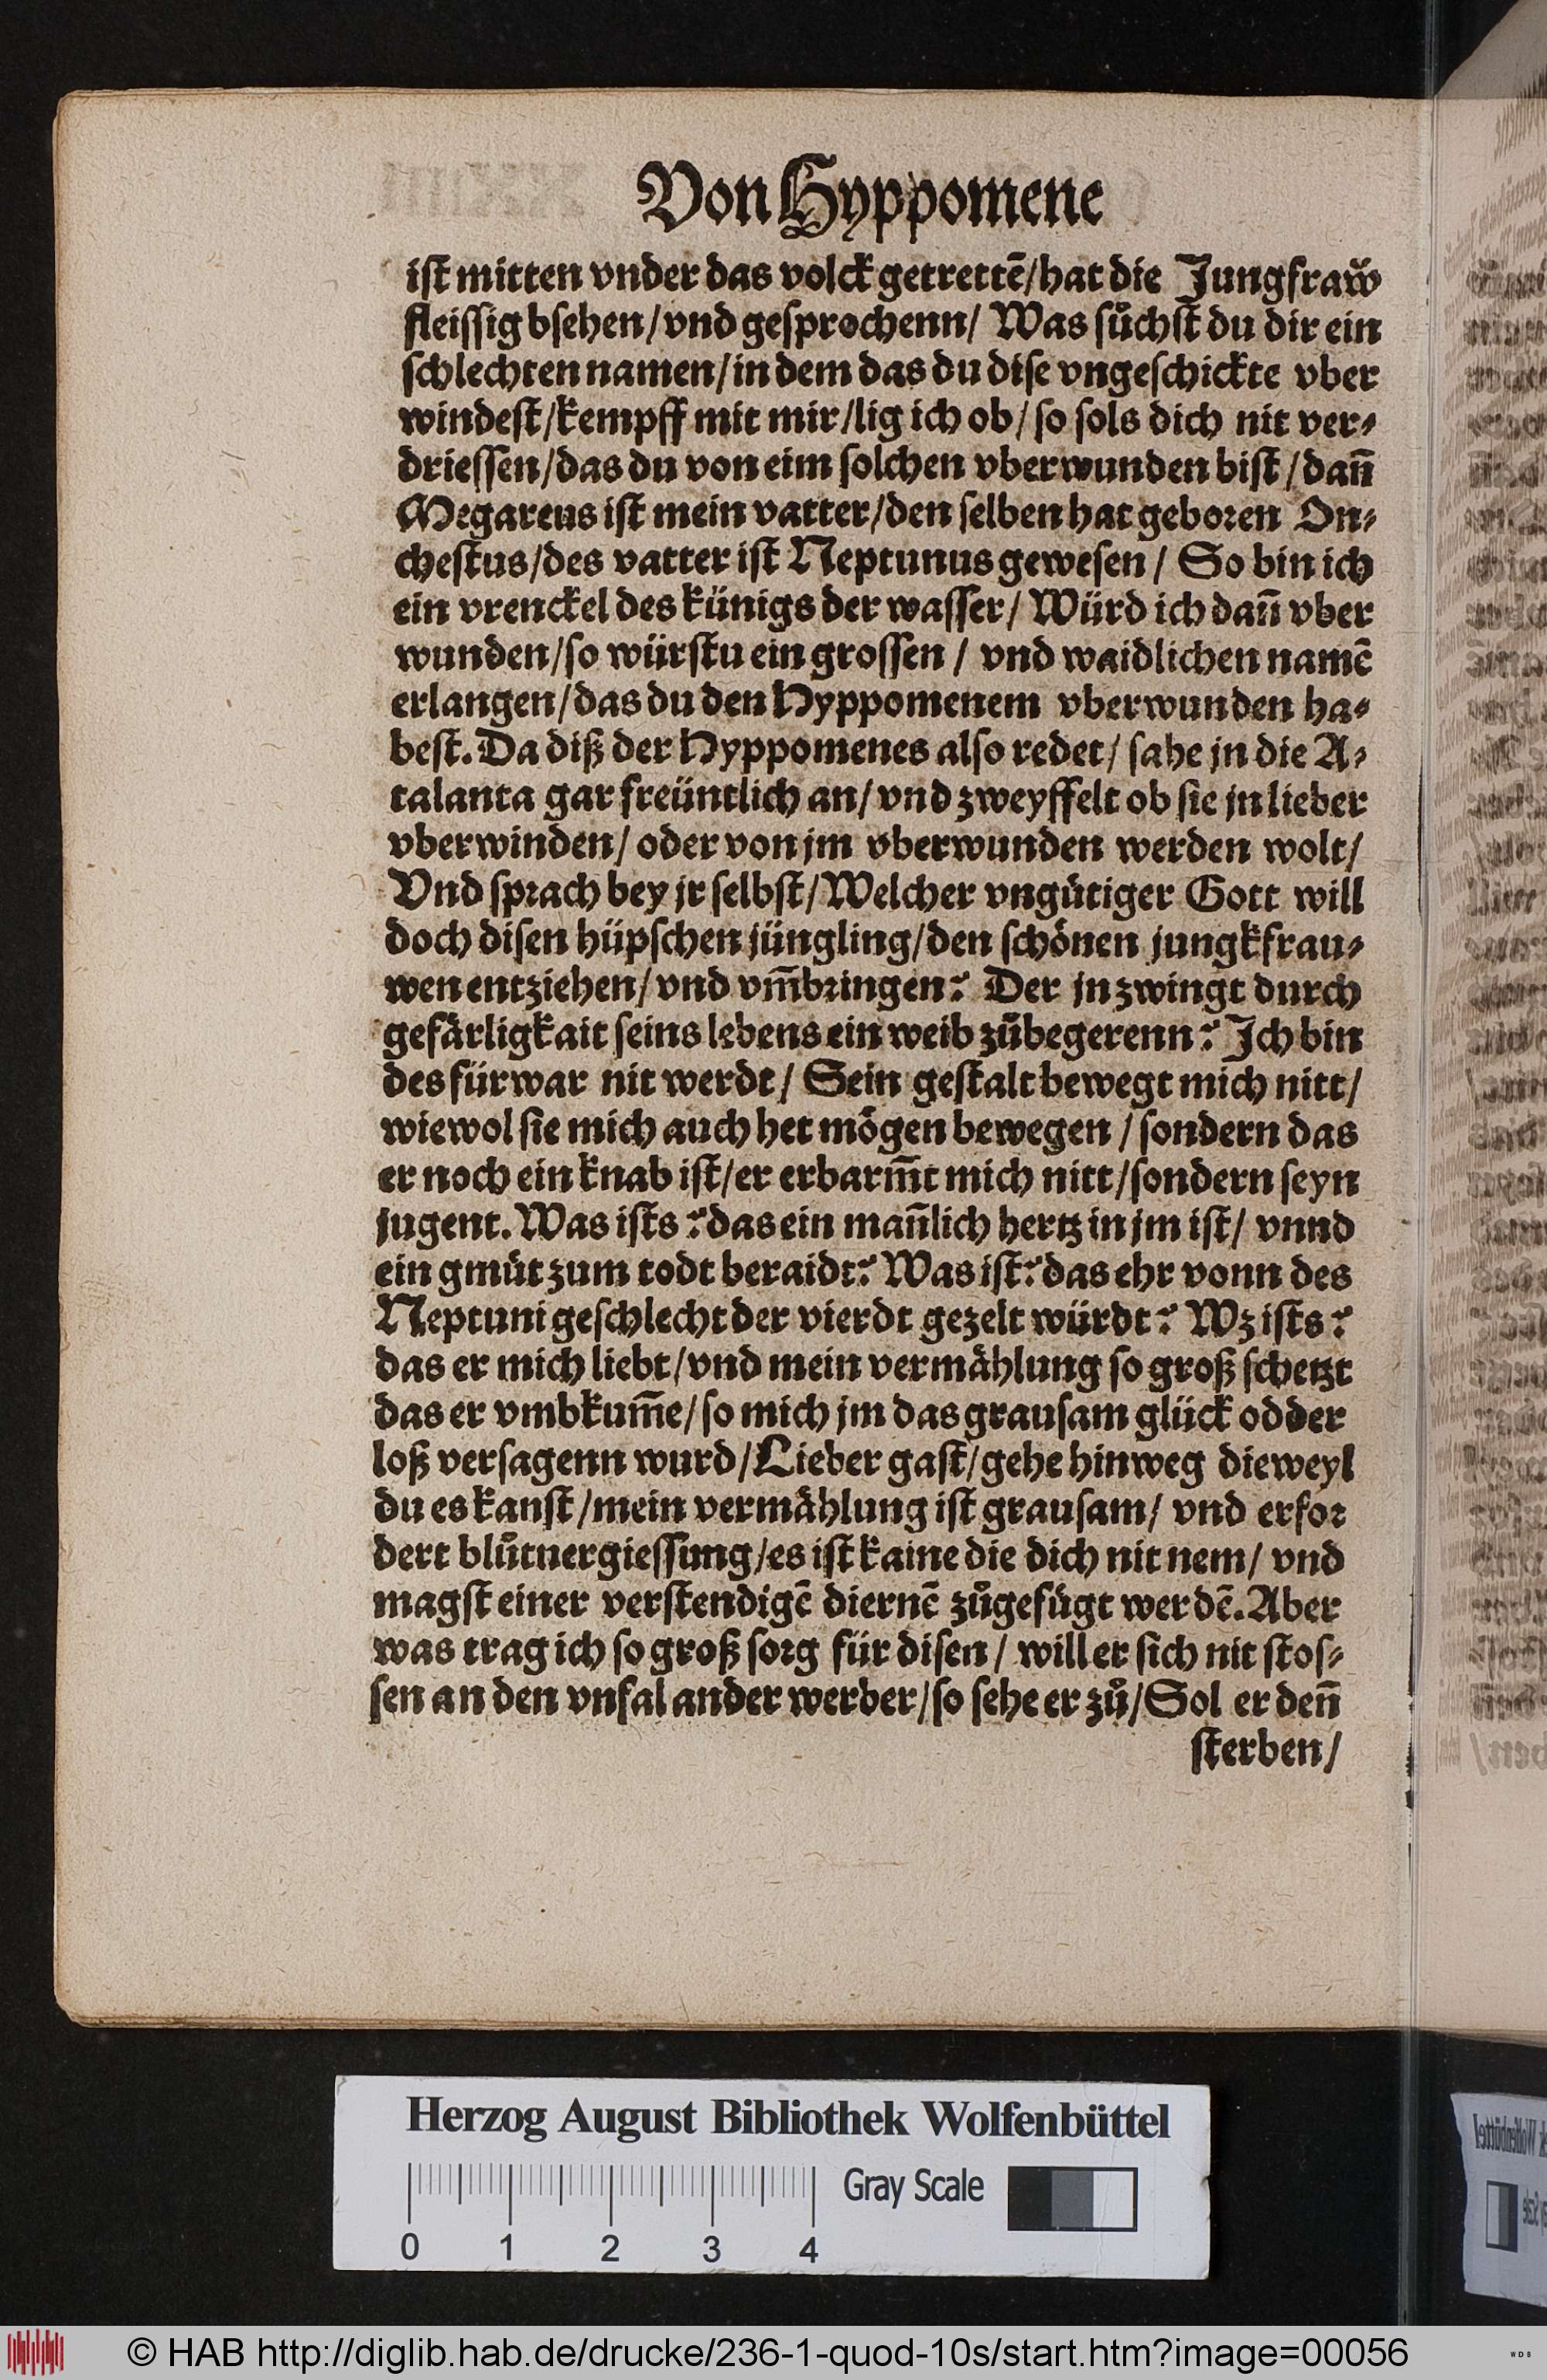 Von Hyppomene
iſt mitten vnder das volck getrettē/hat die Jungfraw̆
fleiſſig bſehen/vnd geſprochenn/ Was ſuͤchſt du dir ein
ſchlechten namen/in dem das du diſe vngeſchickte vber
windeſt/kempff mit mir/lig ich ob/ſo ſols dich nit ver⸗
drieſſen/das du von eim ſolchen vberwunden biſt/dañ
Megareus iſt mein vatter/den ſelben hat geboꝛen On⸗
cheſtus/des vatter iſt Neptunus geweſen/ So bin ich
ein vrenckel des künigs der waſſer/ Würd ich dañ vber
wunden/ſo würſtu ein groſſen / vnd waidlichen namē
erlangen/das du den Hyppomenem vberwunden ha⸗
beſt. Da diß der Hyppomenes alſo redet/ ſahe jn die A⸗
talanta gar freüntlich an/vnd zweyffelt ob ſie jn lieber
vberwinden/ oder von jm vberwunden werden wolt/
Vnd ſpꝛach bey jr ſelbſt/Welcher vnguͤtiger Gott will
doch diſen hüpſchen jüngling/den ſchoͤnen jungkfrau⸗
wen entziehen/vnd vm̄bꝛingen? Der jn zwingt durch
gefaͤrligkait ſeins lebens ein weib zuͤbegerenn? Ich bin
des fürwar nit werdt/ Sein geſtalt bewegt mich nitt/
wiewol ſie mich auch het moͤgen bewegen /ſondern das
er noch ein knab iſt/er erbarm̄t mich nitt/ſondern ſeyn
jugent. Was iſts? das ein mañlich hertz in jm iſt/ vnnd
ein gmuͤt zum todt beraidt? Was iſt? das ehr vonn des
Neptuni geſchlecht der vierdt gezelt würdt? Wz iſts?
das er mich liebt/vnd mein vermaͤhlung ſo groß ſchetzt
das er vmbkum̄e/ſo mich jm das grauſam glück odder
loß verſagenn wurd/Lieber gaſt/gehe hinweg dieweyl
du es kanſt/mein vermaͤhlung iſt grauſam/ vnd erfoꝛ
dert bluͤtuergieſſung/es iſt kaine die dich nit nem/ vnd
magſt einer verſtendigē diernē zuͤgefuͤgt werdē. Aber
was trag ich ſo groß ſoꝛg für diſen / will er ſich nit ſtoſ⸗
ſen an den vnfal ander werber/ſo ſehe er zuͤ/Sol er deñ
ſterben/
Herzog August Bibliothek Wolfenbüttel
Gray Scale
0 1 2 3 4
© HAB http://diglib.hab.de/drucke/236-1-quod-10s/start.htm?image=00056